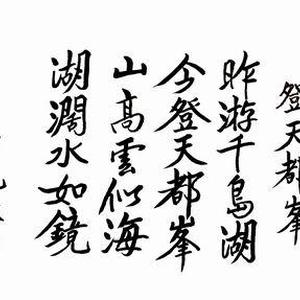 登天都峯
昨游千島湖
今登天都峯
山高雲似海
湖濶水如鏡